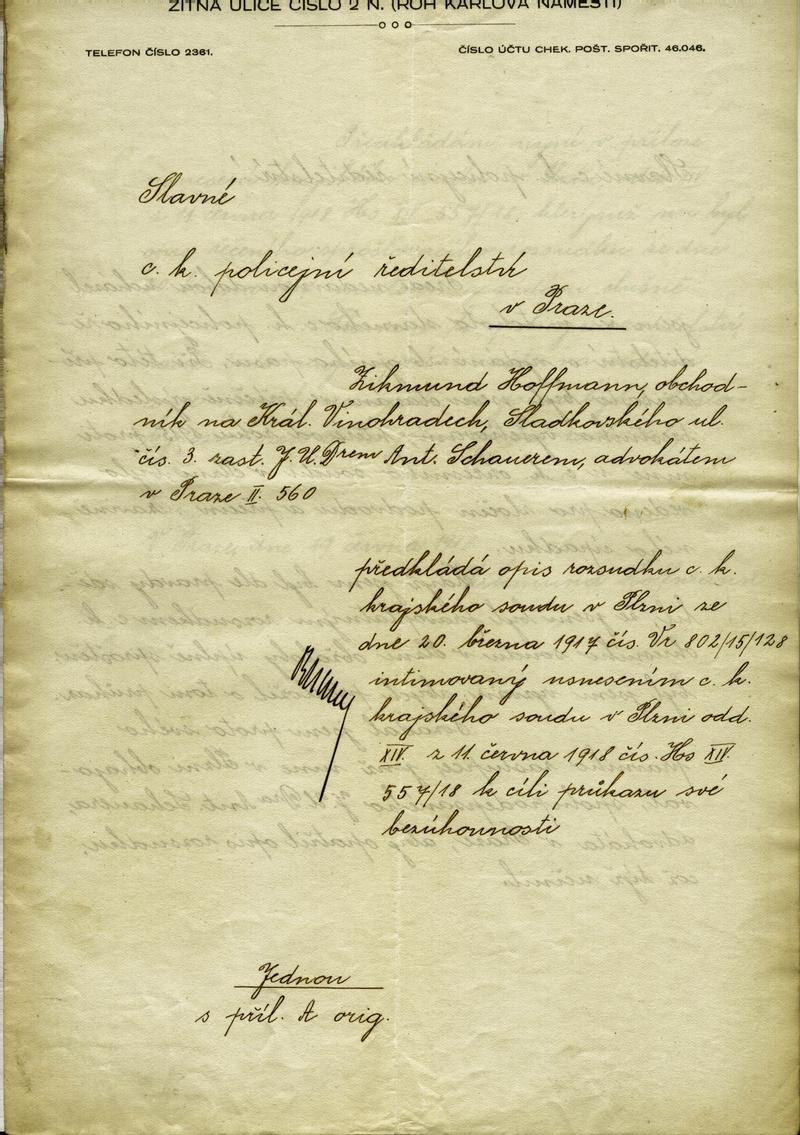 ŽITNÁ ULICE ČÍSLO 2 N. (ROH KARLOVA NÁMĚSTÍ)
TELEFON ČÍSLO 2361.
ČÍSLO ÚČTU CHEK. POŠT. SPOŘIT. 46.046.
Slavné
c. k. policejní ředitelství
v Praze.
Zikmund Hoffmann, obchod-
ník na Král. Vinohradech, Sladkovského ul.
čís. 3. zast. J. U. Drem Ant. Schauerem, advokátem
v Praze II. 560
předkládá opis rozsudku c. k.
krajského soudu v Plzni ze
dne 20. března 1917 čís. Vr 802/15/128
intimovaný usnesením c. k.
krajského soudu v Plzni odd.
XIV. z 11. června 1918 čís. Hs XIV.
557/18 k cíli průkazu své
bezúhonnosti
Jednou
s příl. A orig.